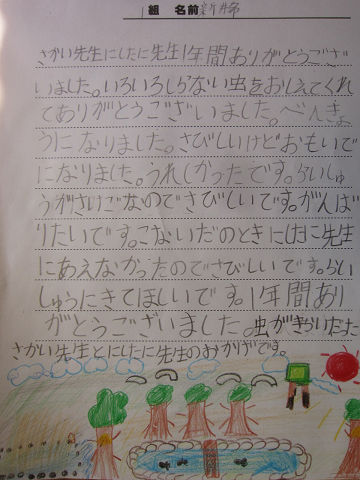 1組 名前
さかい先生にしたに先生1年間ありがとうござ
いました。いろいろしらない虫をおしえてくれ
てありがとうございました。べんきょ
うになりました。さびしいけどおもいで
になりました。うれしかったです。らいしゅ
うがさいごなのでさびしいです。がんば
りたいです。こないだのときにしたに先生
にあえなかったのでさびしいです。らい
しゅうにきてほしいです。1年間あり
がとうございました。虫がきらいだった
さかい先生とにしたに先生のおかげです。